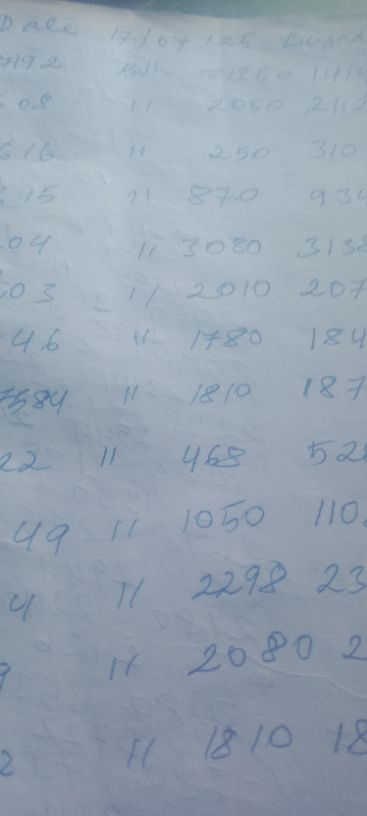 Date 17/07/25
792 Kulh 71350 1414
508 11 2050 2112
616 11 250 310
615 11 870 934
04 11 3080 3138
03 11 2010 207
46 11 1780 184
7584 11 1810 187
22 11 468 528
49 11 1050 110
4 11 2298 23
9 11 2080 2
2 11 1810 18